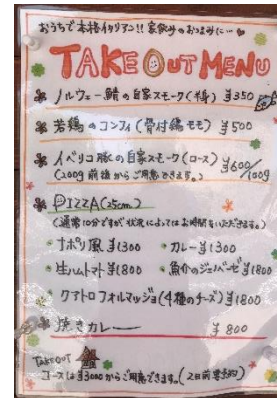 おうちで本格イタリアン!! 家飲みのおつまみに…
TAKE OUT MENU
ノルウェー鯖の自家スモーク(半身) ¥350
若鶏のコンフィ(骨付鶏モモ) ¥500
イベリコ豚の自家スモーク(ロース) ¥600/100g
(200g前後からご用意できます。)
PIZZA(25cm)
(通常10分ですが状況によってはお時間をいただきます。)
・ナポリ風 ¥1300 ・カレー ¥1300
・生ハムトマト ¥1800 ・魚介のジェノベーゼ ¥1800
・クアトロフォルマッジョ(4種のチーズ) ¥1800
焼きカレー ¥800
TAKE OUT
コースは¥3000からご用意できます。(2日前要予約)